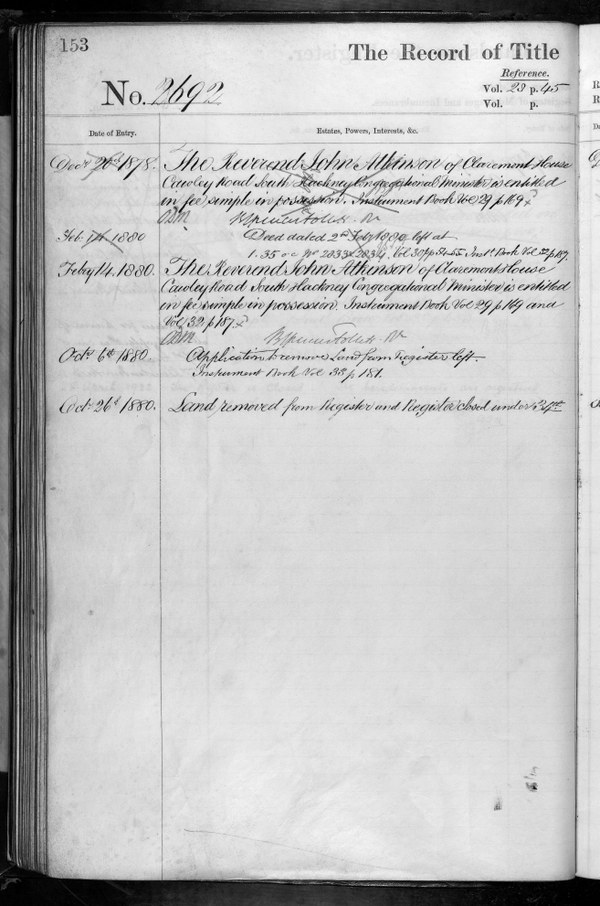 153
The Record of Title
Reference.
No. 2692
Vol. 29 p. 45
Vol. p.
Date of Entry.
Estates, Powers, Interests, &c.
1878. The Reverend John Atkinson of Claremont House
Cawley Road South Hackney Congregational Minister is entitled
in fee simple in possession. Instrument Book Vol 29 p 169
Feb. 14. 1880 Deed dated 2nd Feby 1880 left at
1.35 Nos 2833 & 2834. Vol 30 Inst. Book Vol 32 p 187.
Feby 14. 1880. The Reverend John Atkinson of Claremont House
Cawley Road South Hackney Congregational Minister is entitled
in fee simple in possession. Instrument Book Vol 29 p 169 and
Vol 32 p 187
Octr 6th 1880. Application to remove Land from Register left.
Instrument Book Vol p 181.
Oct. 26th 1880. Land removed from Register and Register closed under 34